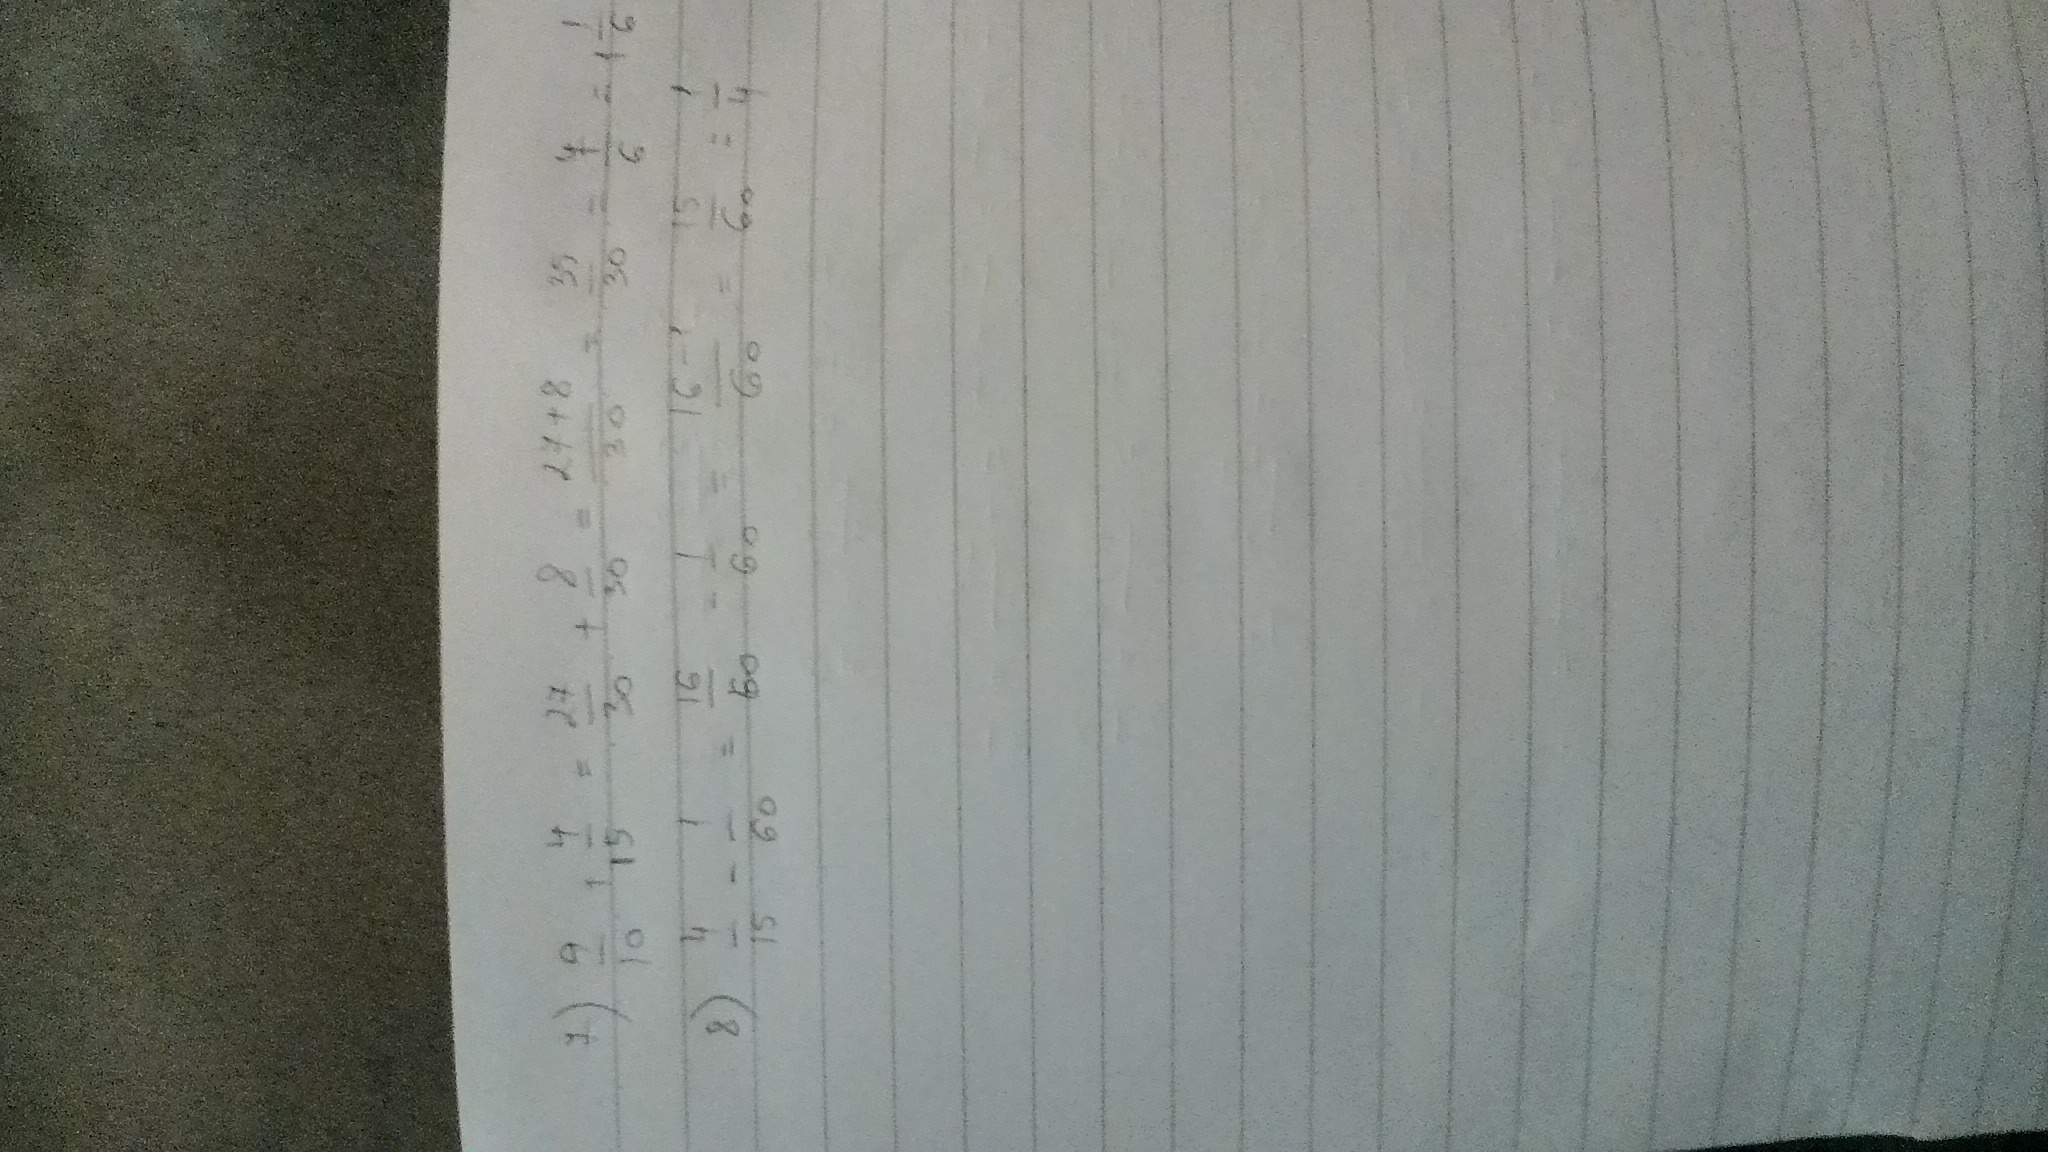 7) 9/10 + 4/15 = 27/30 + 8/30 = 27+8/30 = 35/30 = 7/6 = 1 1/6
8) 4/15 - 1/60 = 16/60 - 1/60 = 16-1/60 = 15/60 = 1/4